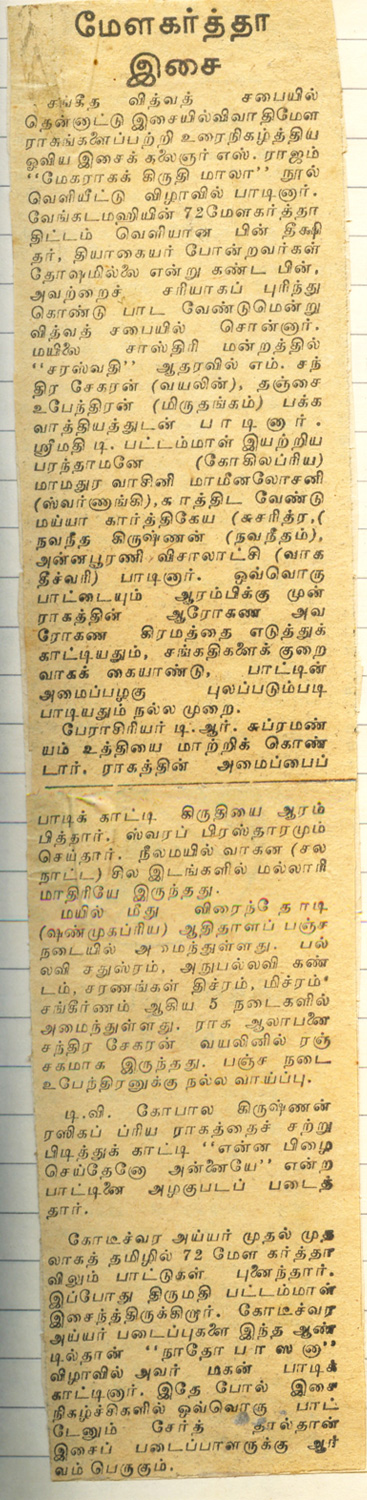 மேளகர்த்தா
இசை
சங்கீத வித்வத் சபையில்
தென்னாட்டு இசையில்விவாதிமேள
ராகங்களைப்பற்றி உரைநிகழ்த்திய
ஓவிய இசைக் கலைஞர் எஸ். ராஜம்
“மேகராகக் கிருதி மாலா” நூல்
வெளியீட்டு விழாவில் பாடினார்.
வேங்கடமஹியின் 72மேளகர்த்தா
திட்டம் வெளியான பின் தீக்ஷி
தர், தியாகையர் போன்றவர்கள்
தோஷமில்லை என்று கண்ட பின்,
அவற்றைச் சரியாகப் புரிந்து
கொண்டு பாட வேண்டுமென்று
வித்வத் சபையில் சொன்னார்.
மயிலை சாஸ்திரி மன்றத்தில்
“சரஸ்வதி” ஆதரவில் எம். சந்
திர சேகரன் (வயலின்), தஞ்சை
உபேந்திரன் (மிருதங்கம்) பக்க
வாத்தியத்துடன் பாடினார்.
ஸ்ரீமதி டி. பட்டம்மாள் இயற்றிய
பரந்தாமனே (கோகிலப்ரிய)
மாமதுர வாசினி மாமீனலோசனி
(ஸ்வர்ணாங்கி),காத்திட வேண்டு
மய்யா கார்த்திகேய (சுசரித்ர,(
நவநீத கிருஷ்ணன் (நவநீதம்),
அன்னபூரணி விசாலாட்சி (வாக
தீச்வரி) பாடினார். ஒவ்வொரு
பாட்டையும் ஆரம்பிக்கு முன்
ராகத்தின் ஆரோகண அவ
ரோகண கிரமத்தை எடுத்துக்
காட்டியதும், சங்கதிகளைக் குறை
வாகக் கையாண்டு, பாட்டின்
அமைப்பழகு புலப்படும்படி
பாடியதும் நல்ல முறை.
பேராசிரியர் டி.ஆர். சுப்ரமண்
யம் உத்தியை மாற்றிக் கொண்
டார். ராகத்தின் அமைப்பைப்
பாடிக் காட்டி கிருதியை ஆரம்
பித்தார். ஸ்வரப் பிரஸ்தாரமும்
செய்தார். நீலமயில் வாகன (சல
நாட்ட) சில இடங்களில் மல்லாரி
மாதிரியே இருந்தது.
மயில் மீது விரைந்தோடி
(ஷண்முகப்ரிய) ஆதிதாளப் பஞ்ச
நடையில் அமைந்துள்ளது. பல்
லவி சதுஸ்ரம், அநுபல்லவி கண்
டம், சரணங்கள் திச்ரம், மிச்ரம்
சங்கீர்ணம் ஆகிய 5 நடைகளில்
அமைந்துள்ளது. ராக ஆலாபனை
சந்திர சேகரன் வயலினில் ரஞ்
சகமாக இருந்தது. பஞ்ச நடை
உபேந்திரனுக்கு நல்ல வாய்ப்பு.
டி.வி. கோபால கிருஷ்ணன்
ரஸிகப் ப்ரிய ராகத்தைச் சற்று
பிடித்துக் காட்டி “என்ன பிழை
செய்தேனோ அன்னையே” என்ற
பாட்டினை அழகுபடப் படைத்
தார்.
கோடீச்வர அய்யர் முதல் முத
லாகத் தமிழில் 72 மேள கர்த்தா
விலும் பாட்டுகள் புனைந்தார்.
இப்போது திருமதி பட்டம்மாள்
இசைந்த்திருக்கிறார். கோடீச்வர
அய்யர் படைப்புகளை இந்த ஆண்
டில்தான் “நாதோபாஸனா”
விழாவில் அவர் மகன் பாடிக்
காட்டினார். இதே போல் இசை
நிகழ்ச்சிகளில் ஒவ்வொரு பாட்
டேனும் சேர்த் தால்தான்
இசைப் படைப்பாளருக்கு ஆர்
வம் பெருகும்.